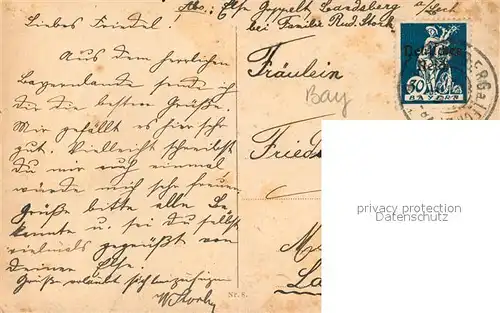 Abs: Else Geppelt Landsberg a/Lech
bei Familie Rud. Stork
Liebes Friedel!
Aus dem herrlichen
Bayernlande sende ich
dir die besten Grüße.
Mir gefällt es hier sehr
gut. Vielleicht schreibst
du mir auch einmal
würde mich sehr freuen
Grüße bitte alle Be-
kannte u. sei du selbst
vielmals gegrüßt von
deiner Else.
Grüße erlaubt sich beizufügen
W. Storky
Fräulein
Bay
Deutsches
Reich
50
BAYERN
Fried
privacy protection
Datenschutz
M
La
Nr. 8.